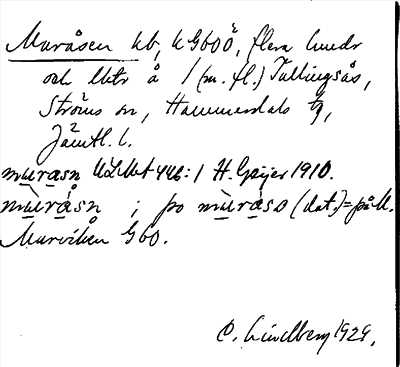 Muråsen kb, kG600̈, flera hmdr
och lhtr å 1 (m. fl.) Tullingsås,
Ströms sn, Hammerdals tg,
Jämtl. l.
murasn ULMA 446:1 H. Geijer 1910.
mùråsn ; po mùråsa (dat.) = på M.
Murviken G60.
O. Lindberg 1929.